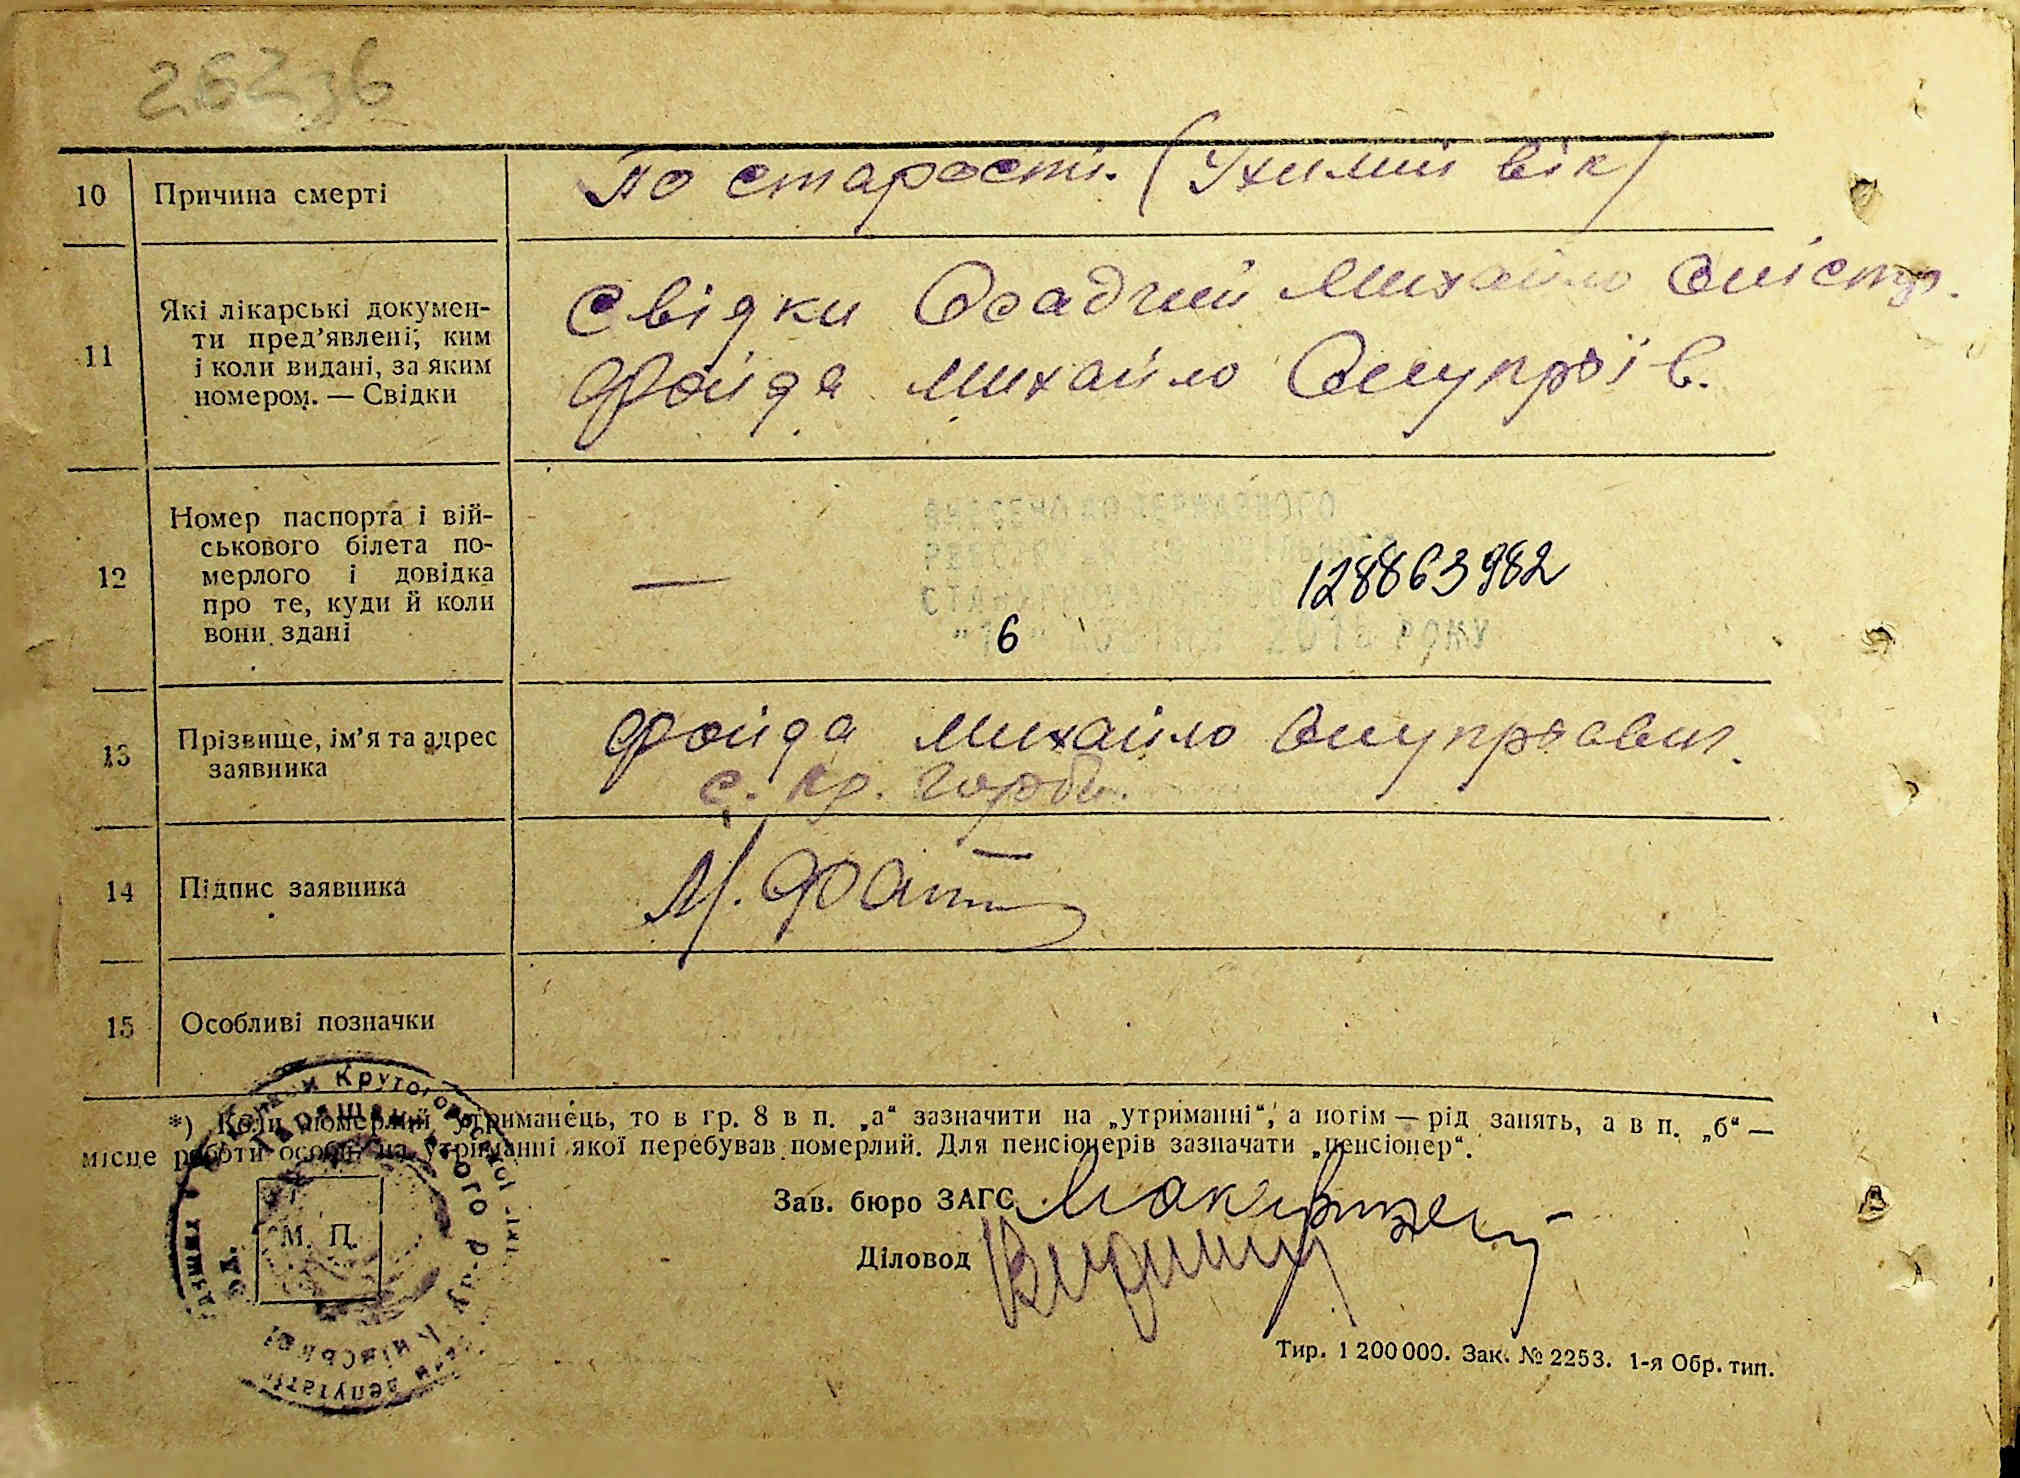 10 Причина смерті
По старості. (Ухилий вік)
11 Які лікарські докумен-
ти пред’явлені, ким
і коли видані, за яким
номером. — Свідки
Свідки Осадчий Михайло
Фойда Михайло Онупріїв.
12 Номер паспорта і вій-
ськового білета по-
мерлого і довідка
про те, куди й коли
вони здані
—
128863982
6
2018 РОКУ
13 Прізвище, ім’я та адрес
заявника
Фойда Михайло Онупрієвич.
с. Кр. Горби.
14 Підпис заявника
М.
15 Особливі позначки
*) Коли померлий утриманець, то в гр. 8 в п. „а“ зазначити на „утриманні“, а потім — рід занять, а в п. „б“ —
місце роботи особи, на утриманні якої перебував померлий. Для пенсіонерів зазначати „пенсіонер“.
Зав. бюро ЗАГС
Діловод
М. П.
Тир. 1 200 000. Зак. № 2253. 1-я Обр. тип.